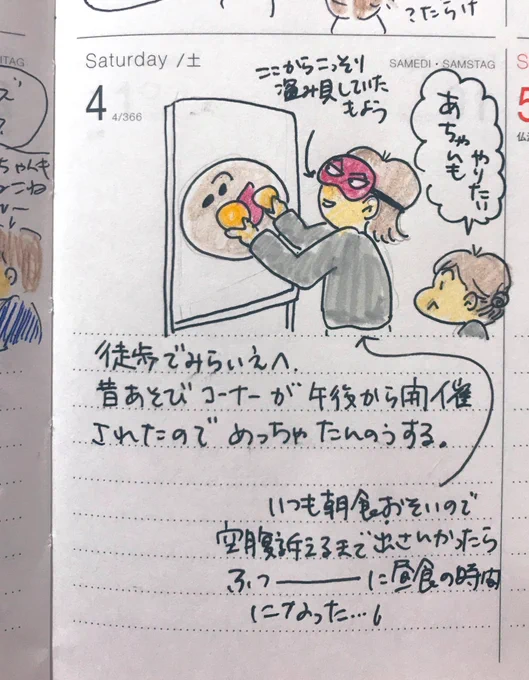 こたらけ
Saturday /土
SAMEDI・SAMSTAG
4
4/366
ここからこっそり
盗み見していた
もよう
あちゃんも
やりたい
徒歩でみらいえへ.
昔あそびコーナーが午後から開催
されたので めっちゃ たんのうする。
いつも朝食おそいので
空腹訴えるまで出さんかったら
ふつ――に昼食の時間
になった…
ITAG
ちゃんも
S
5